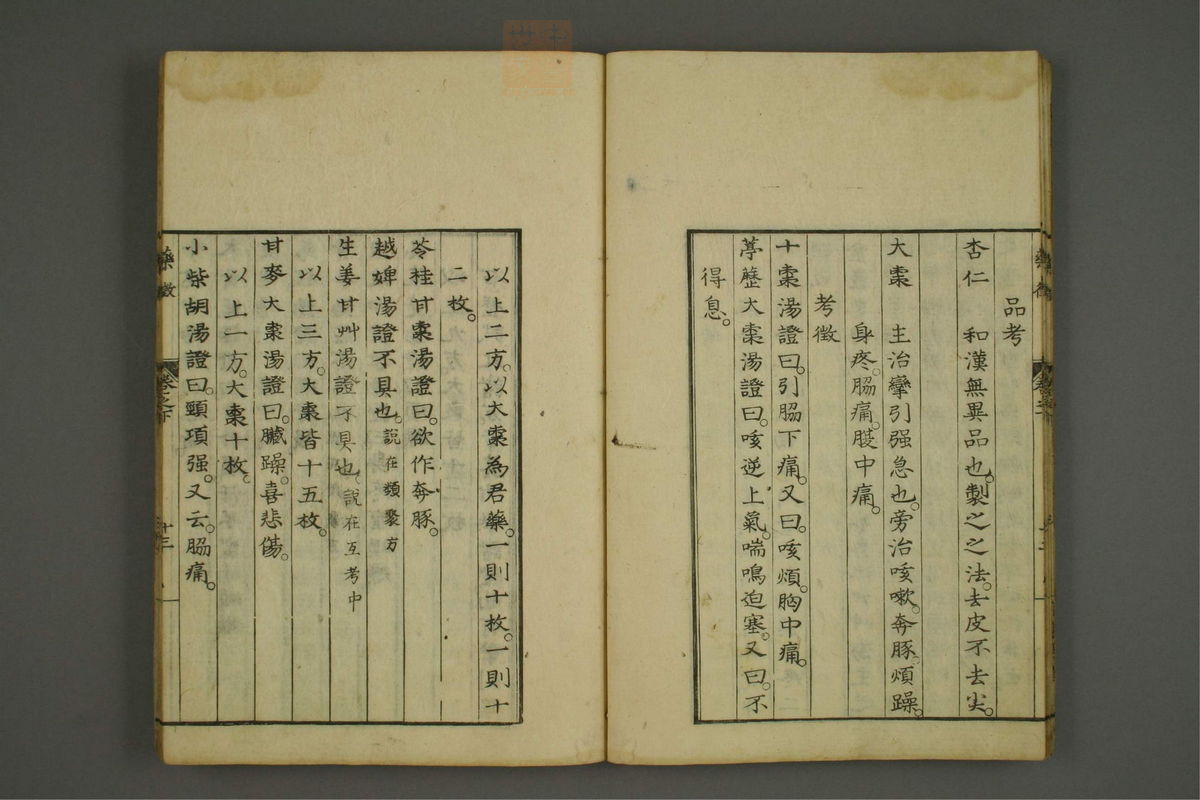 品考
杏仁　和漢無異品也。製之之法。去皮不去尖。
大棗　主治攣引强急也。旁治咳嗽。奔豚煩躁。
身疼。脇痛。腹中痛。
考徵
十棗湯證曰。引脇下痛。又曰。咳煩。胸中痛。
葶藶大棗湯證曰。咳逆上氣。喘鳴迫塞。又曰。不
得息。
以上二方。以大棗為君藥。一則十枚。一則十
二枚。
苓桂甘棗湯證曰。欲作奔豚。
越婢湯證不具也。說在類聚方
生姜甘艸湯證不具也。說在互考中
以上三方。大棗皆十五枚。
甘麥大棗湯證曰。臟躁。喜悲傷。
以上一方。大棗十枚。
小柴胡湯證曰。頸項强。又云。脇痛。
藥徵
卷之下
十三